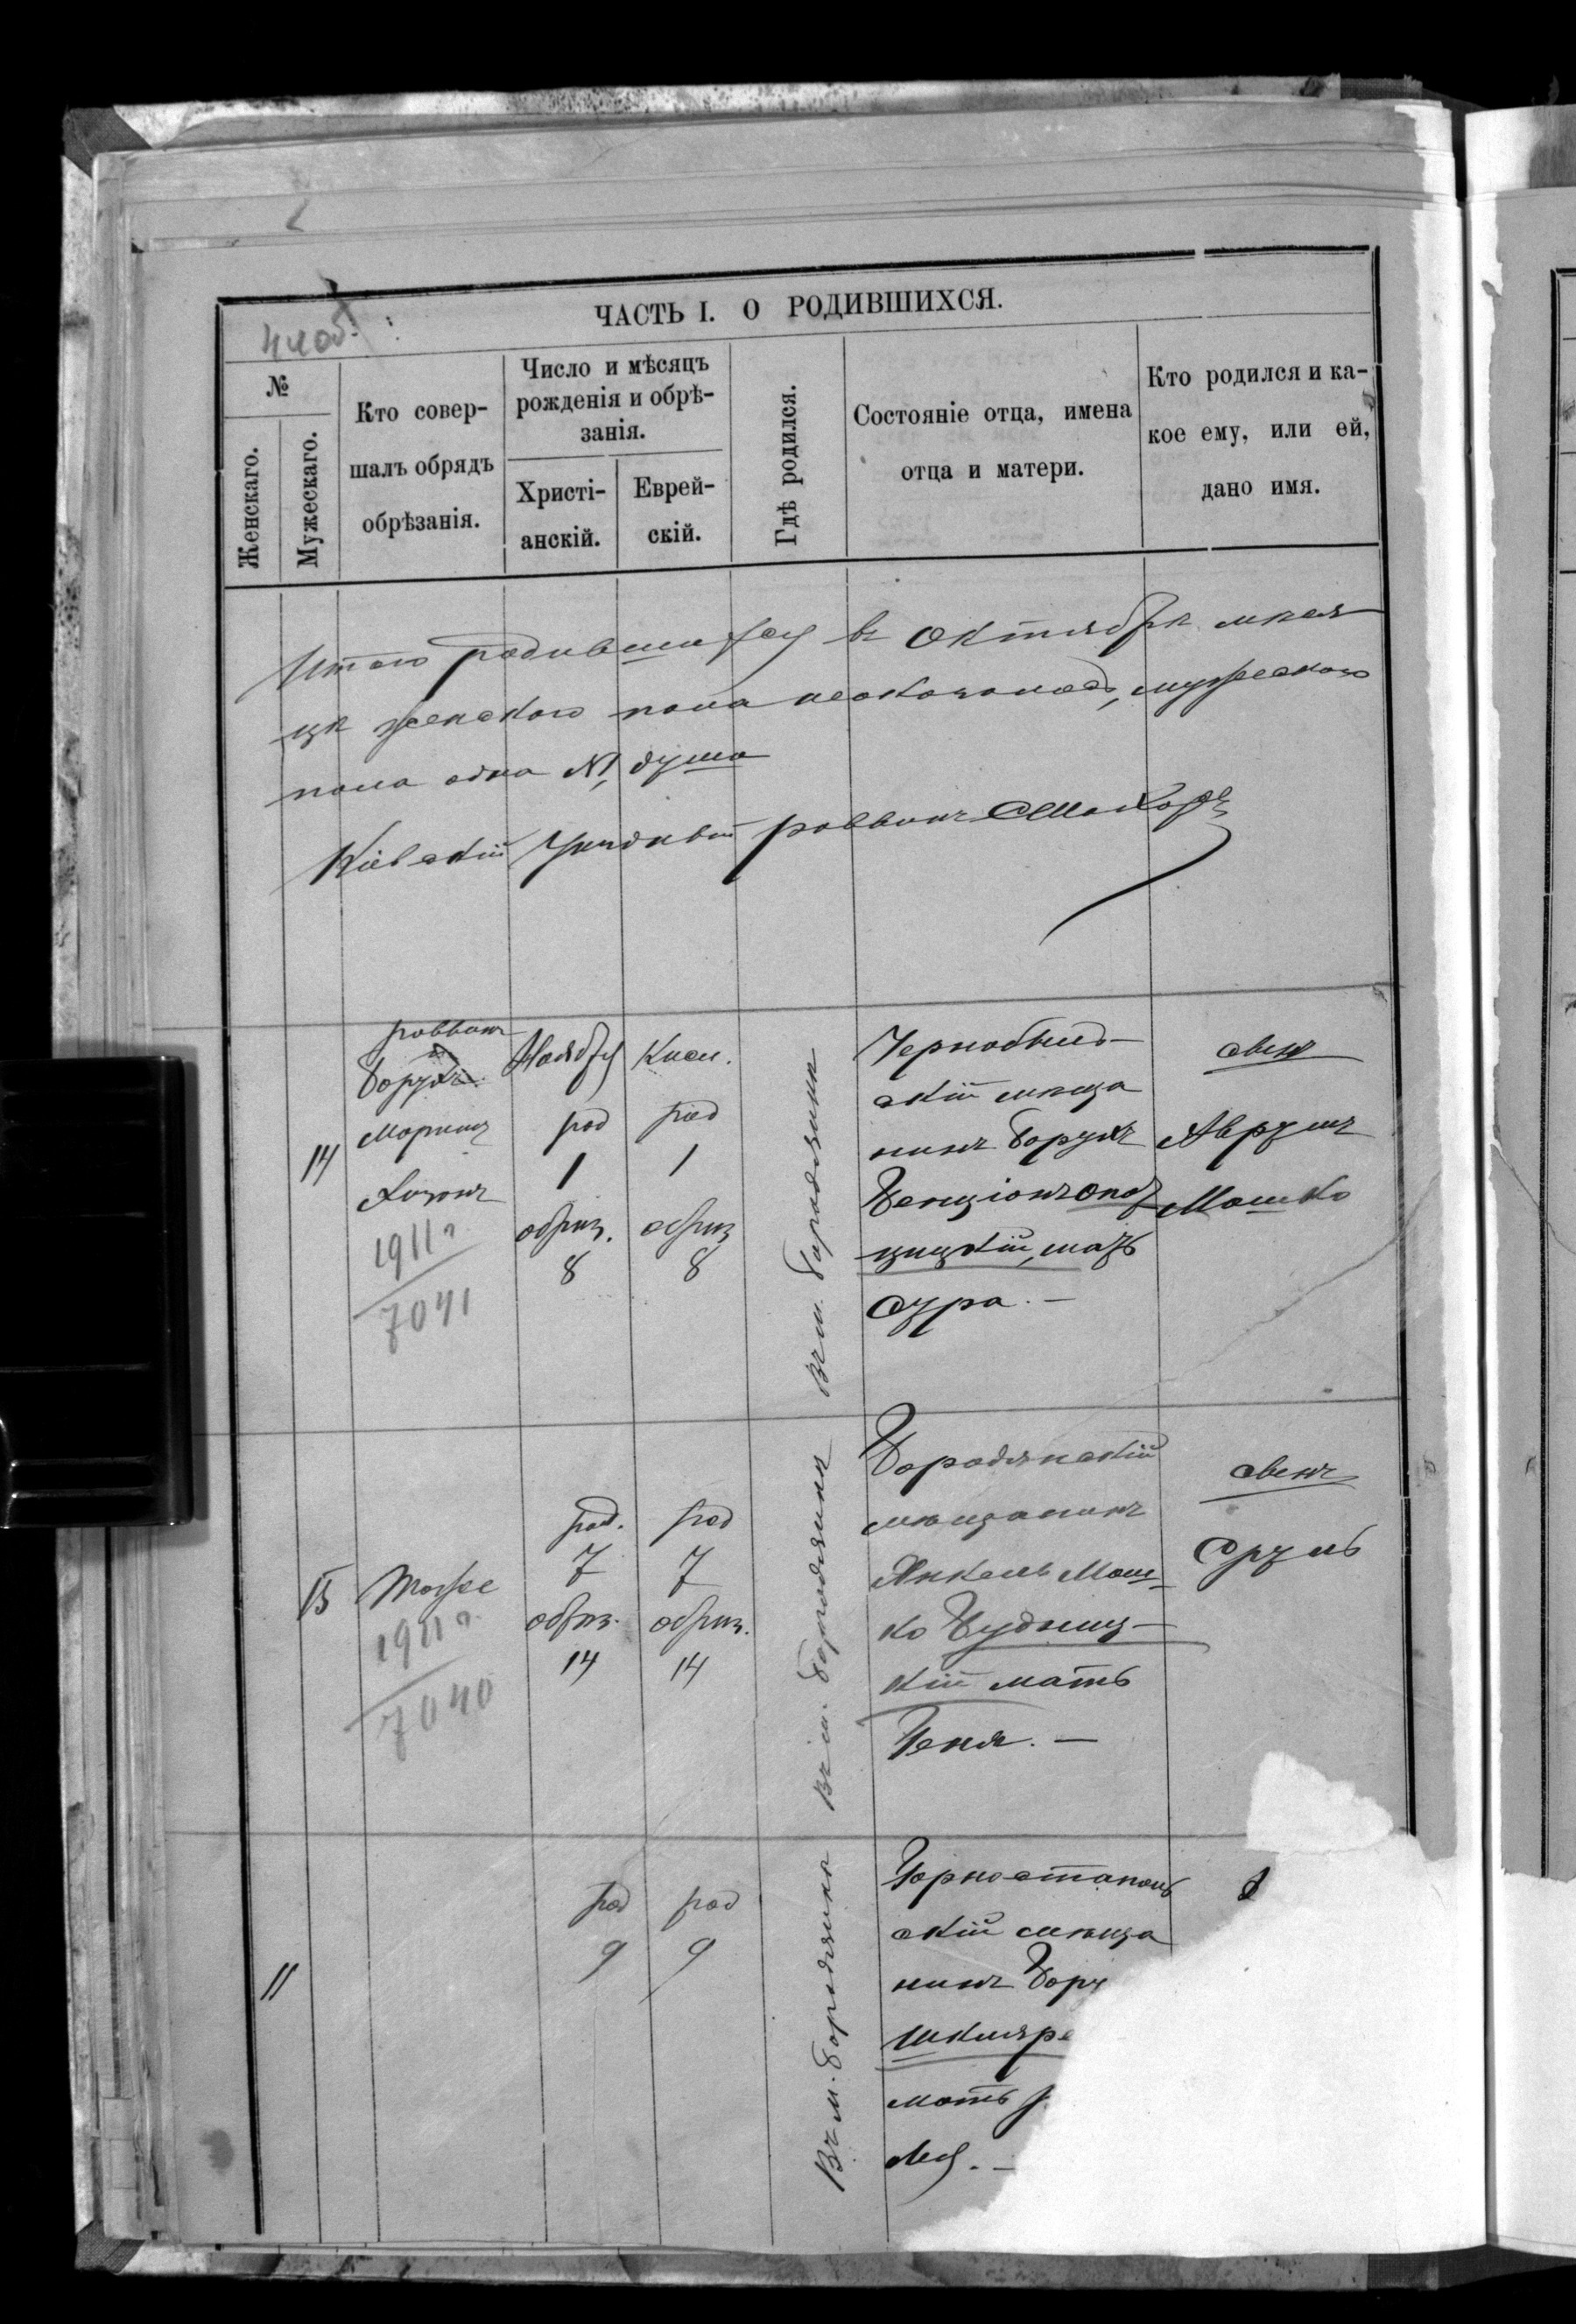 44об.
ЧАСТЬ I. О РОДИВШИХСЯ.
№
Женскаго.
Мужескаго.
Кто совер-
шалъ обрядъ
обрѣзанія.
Число и мѣсяцъ
рожденія и обрѣ-
занія.
Христі-
анскій.
Еврей-
скій.
Гдѣ родился.
Состояніе отца, имена
отца и матери.
Кто родился и ка-
кое ему, или ей,
дано имя.
Итого родившихся въ Октябрѣ мѣся
цѣ женскаго пола неоказалось, мужескаго
пола одна № 1, душа
Кіевскій Уѣздный раввинъ
14
раввинъ
Борухъ
Хазанъ
1911 г.
7041
Ноября
род
1
обрѣз.
8
Кисл.
род
1
обрѣз
8
Въ м. Бородянкѣ
Чернобыль-
скій мѣща
нинъ Борухъ
Бенціонъ
мать
Сура. —
сынъ
Аврумъ
Мошко
15
Тоже
1911 г.
7040
род.
7
обрѣз.
14
род
7
обрѣз.
14
Въ м. Бородянкѣ
Бородянскій
мѣщанинъ
Янкель Мош-
ко Будниц-
кій мать
Геня. —
сынъ
Сруль
11
род
9
род
9
Въ м. Бородянкѣ
Горностайполь
скій мѣща
нинъ Бору
Шкляре
мать
Лея. —